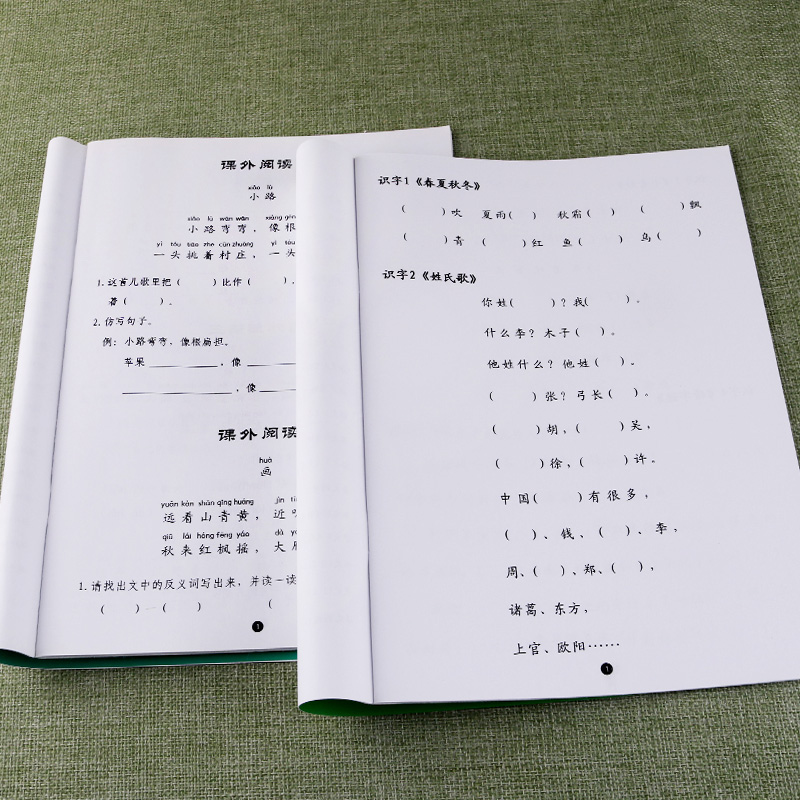 课外阅读
xiǎo lù
小路
xiǎo lù wān wān xiàng gēn
小路弯弯，像根
yì tóu tiāo zhe cūn zhuāng yì tóu
一头挑着村庄，一头
1.这首儿歌里把（ ）比作（ ），
着（ ）。
2.仿写句子。
例：小路弯弯，像根扁担。
苹果________，像
________，像
课外阅读
huà
画
yuǎn kàn shān qīng huáng jìn
远看山青黄，近
qiū lái hóng fēng yáo dà
秋来红枫摇，大
1.请找出文中的反义词写出来，并读一读
（ ）—（ ） （
1
识字1《春夏秋冬》
（ ）吹 夏雨（ ） 秋霜（ ） （ ）飘
（ ）青 （ ）红 鱼（ ） 鸟（ ）
识字2《姓氏歌》
你姓（ ）？我（ ）。
什么李？木子（ ）。
他姓什么？他姓（ ）。
（ ）张？弓长（ ）。
（ ）胡，（ ）吴，
（ ）徐，（ ）许。
中国（ ）有很多，
（ ）、钱、（ ）、李，
周、（ ）、郑、（ ），
诸葛、东方，
上官、欧阳……
1